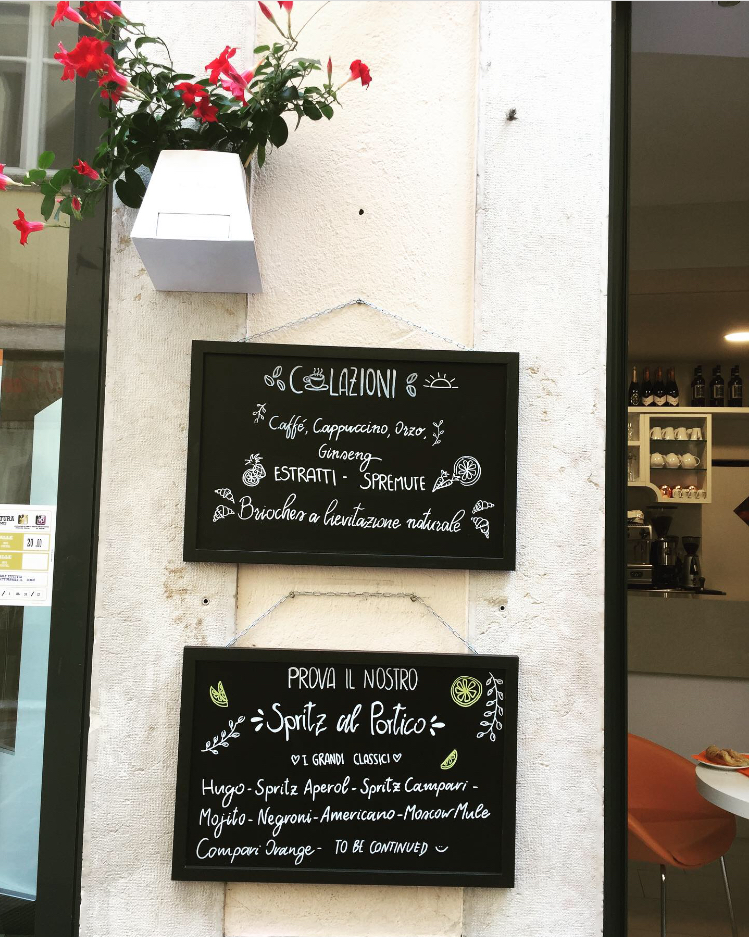 COLAZIONI
Caffé, Cappuccino, Orzo,
Ginseng
ESTRATTI - SPREMUTE
Brioches a lievitazione naturale
PROVA IL NOSTRO
Spritz al Portico
I GRANDI CLASSICI
Hugo - Spritz Aperol - Spritz Campari -
Mojito - Negroni - Americano - Moscow Mule
Campari Orange - TO BE CONTINUED